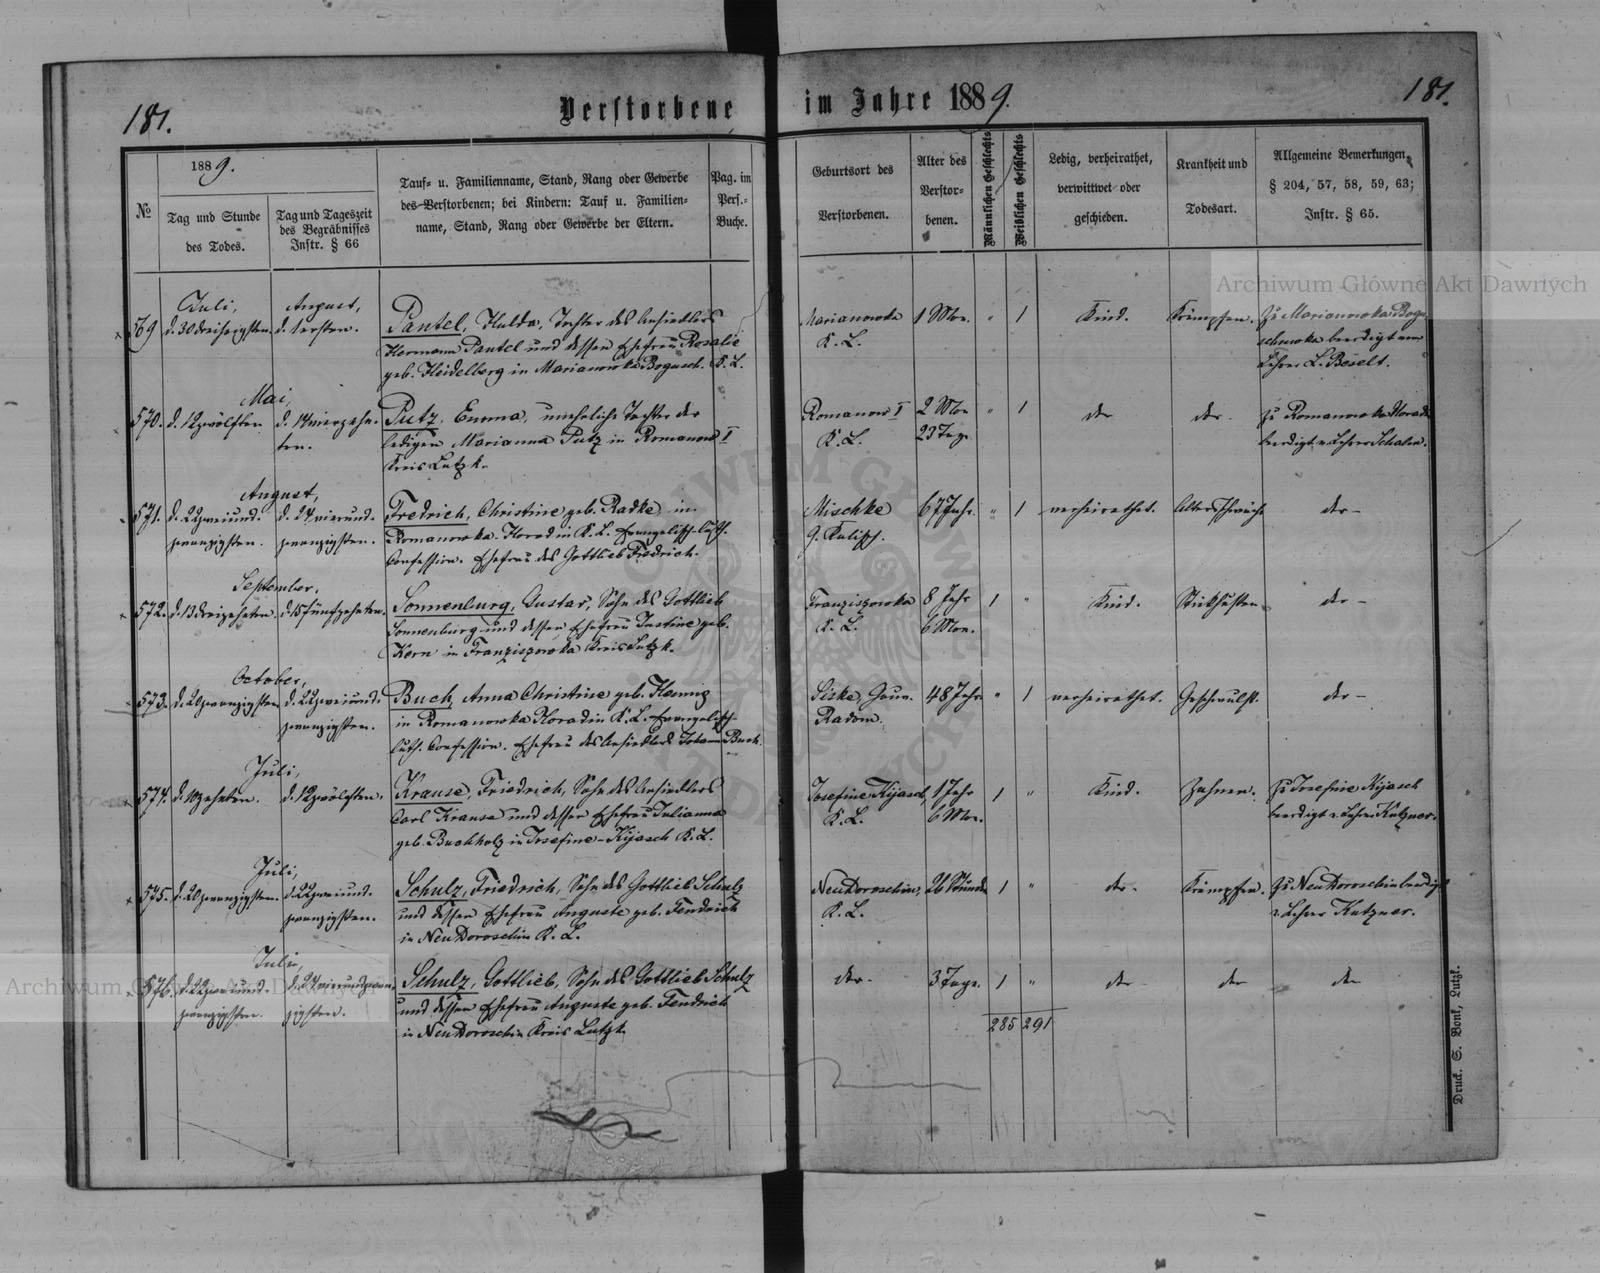 181.
Verstorbene im Jahre 1889.
181.
№
1889.
Tag und Stunde
des Todes.
Tag und Tageszeit
des Begräbnisses
Instr. § 66
Tauf- u. Familienname, Stand, Rang oder Gewerbe
des Verstorbenen; bei Kindern: Tauf u. Familien-
name, Stand, Rang oder Gewerbe der Eltern.
Pag. im
Pers.-
Buche.
Geburtsort des
Verstorbenen.
Alter des
Verstor-
benen.
Männlichen Geschlechts
Weiblichen Geschlechts
Ledig, verheirathet,
verwittwet oder
geschieden.
Krankheit und
Todesart.
Allgemeine Bemerkungen
§ 204, 57, 58, 59, 63;
Instr. § 65.
569
Juli,
d. 30 dreissigsten.
August,
d. 1 ersten.
Pantel, Hulda, Tochter des Ansiedlers
Hermann Pantel und dessen Ehefrau Rosalie
geb. Heidelberg in Marianowka Bogusch. K. L.
Marianowka
K. L.
1 Mon.
" 1
Kind.
Krämpfen.
Zu Marianowka Bogu
schowka beerdigt vom
Lehrer L. Beselt.
570.
Mai,
d. 12 zwölften
d. 14 vierzehn-
ten.
Putz, Emma, uneheliche Tochter der
ledigen Marianna Putz in Romanow I
Kreis Lutzk.
Romanow I
K. L.
2 Mon
23 Tage.
" 1
der
der.
Zu Romanowka Horad.
beerdigt v. Lehrer
571.
August,
d. 22 zweiund-
zwanzigsten.
d. 24 vierund-
zwanzigsten.
Fredrich, Christine geb. Radke in
Romanowka-Horodin K. L. Evangelisch-Luth.
Confession. Ehefrau des Gottlieb Fredrich.
Mischke
G. Kalisch.
67 Jahr.
" 1
verheirathet.
Altersschwäche
der-
572.
September,
d. 13 dreizehnten.
d. 15 fünfzehnten.
Sonnenburg, Gustav, Sohn des Gottlieb
Sonnenburg und dessen Ehefrau Justine geb.
Korn in Franziszowka Kreis Lutzk.
Franziszowka
K. L.
8 Jahr
6 Mon.
1 "
Kind.
Stickhusten
der-
573.
October,
d. 20 zwanzigsten
d. 22 zweiund-
zwanzigsten.
Buch, Anna Christine geb. Hennig
in Romanowka Horadin K. L. Evangelisch-
Luth. Confession. Ehefrau des Ansiedlers Johann Buch.
Siske, Gouv.
Radom.
48 Jahr
" 1
verheirathet.
Geschwulst.
der-
574.
Juli,
d. 10 zehnten.
d. 12 zwölften.
Krause, Friedrich, Sohn des Ansiedlers
Carl Krause und dessen Ehefrau Julianna
geb. Buchholz in Josefine-Kijasch K. L.
Josefine Kijasch
K. L.
1 Jahr
6 Mon.
1 "
Kind.
Zahnen.
Zu Josefine Kijasch
beerdigt v. Lehrer Kutzner.
575.
Juli,
d. 20 zwanzigsten.
d. 22 zweiund-
zwanzigsten.
Schulz, Friedrich, Sohn des Gottlieb Schulz
und dessen Ehefrau Auguste geb. Fendrich
in Neu Dorostin K. L.
Neu Dorostin,
K. L.
26 Stunden
1 "
der.
Krämpfen.
Zu Neu Dorostin beerdigt
v. Lehrer Kutzner.
576.
Juli,
d. 22 zweiund-
zwanzigsten.
d. 24 vierundzwan-
zigsten.
Schulz, Gottlieb, Sohn des Gottlieb Schulz
und dessen Ehefrau Auguste geb. Fendrich
in Neu Dorostin Kreis Lutzk
der.
3 Tage.
1 "
der
der
der
285 291
Druck. S. Bonk, Lutzk.
Archiwum Główne Akt Dawnych
Archiwum Główne Akt Dawnych